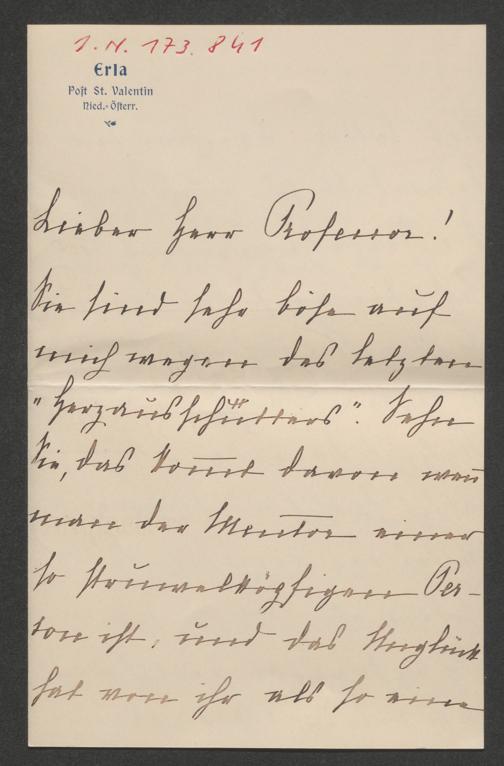 I. N. 173.841
Erla
Post St. Valentin
Nied.-Österr.
Lieber Herr Professor!
Sie sind sehr böse auf
mich wegen des letzten
"Herzausschüttens". Sehn
Sie, das kommt davon wenn
man der Mentor einer
so struwelköpfigen Per-
son ist, und das Unglück
hat von ihr als so eine